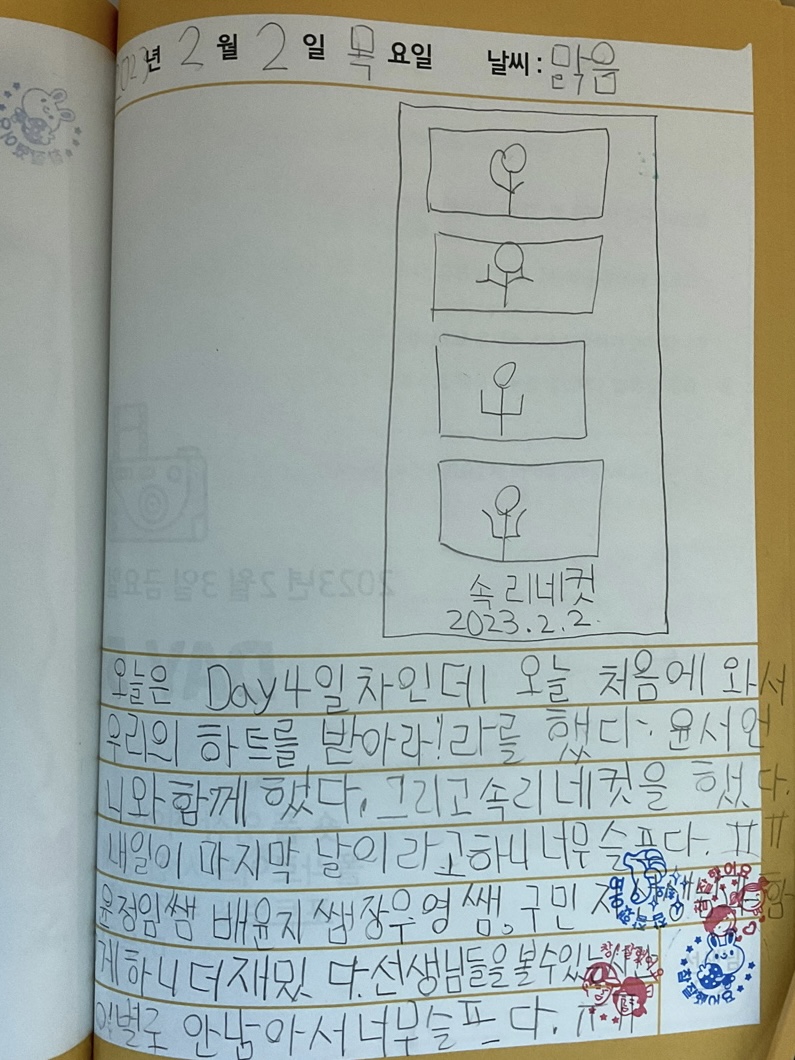 2023년 2월 2일 목요일 날씨: 맑음
속리네컷
2023.2.2.
오늘은 Day4일차인데 오늘 처음에 와서
우리의 하트를 받아라!라를 했다. 윤서언
니와 함께 했다. 그리고 속리네컷을 했다.
내일이 마지막 날이라고하니 너무슬프다. ㅠㅠ
윤정임쌤 배윤지쌤 장우영쌤, 구민 함
께하니 더재밌다. 선생님들을볼수있
별로 안남아서너무슬프다. ㅠㅠ
2023년 2월 3일 금요일
DAY